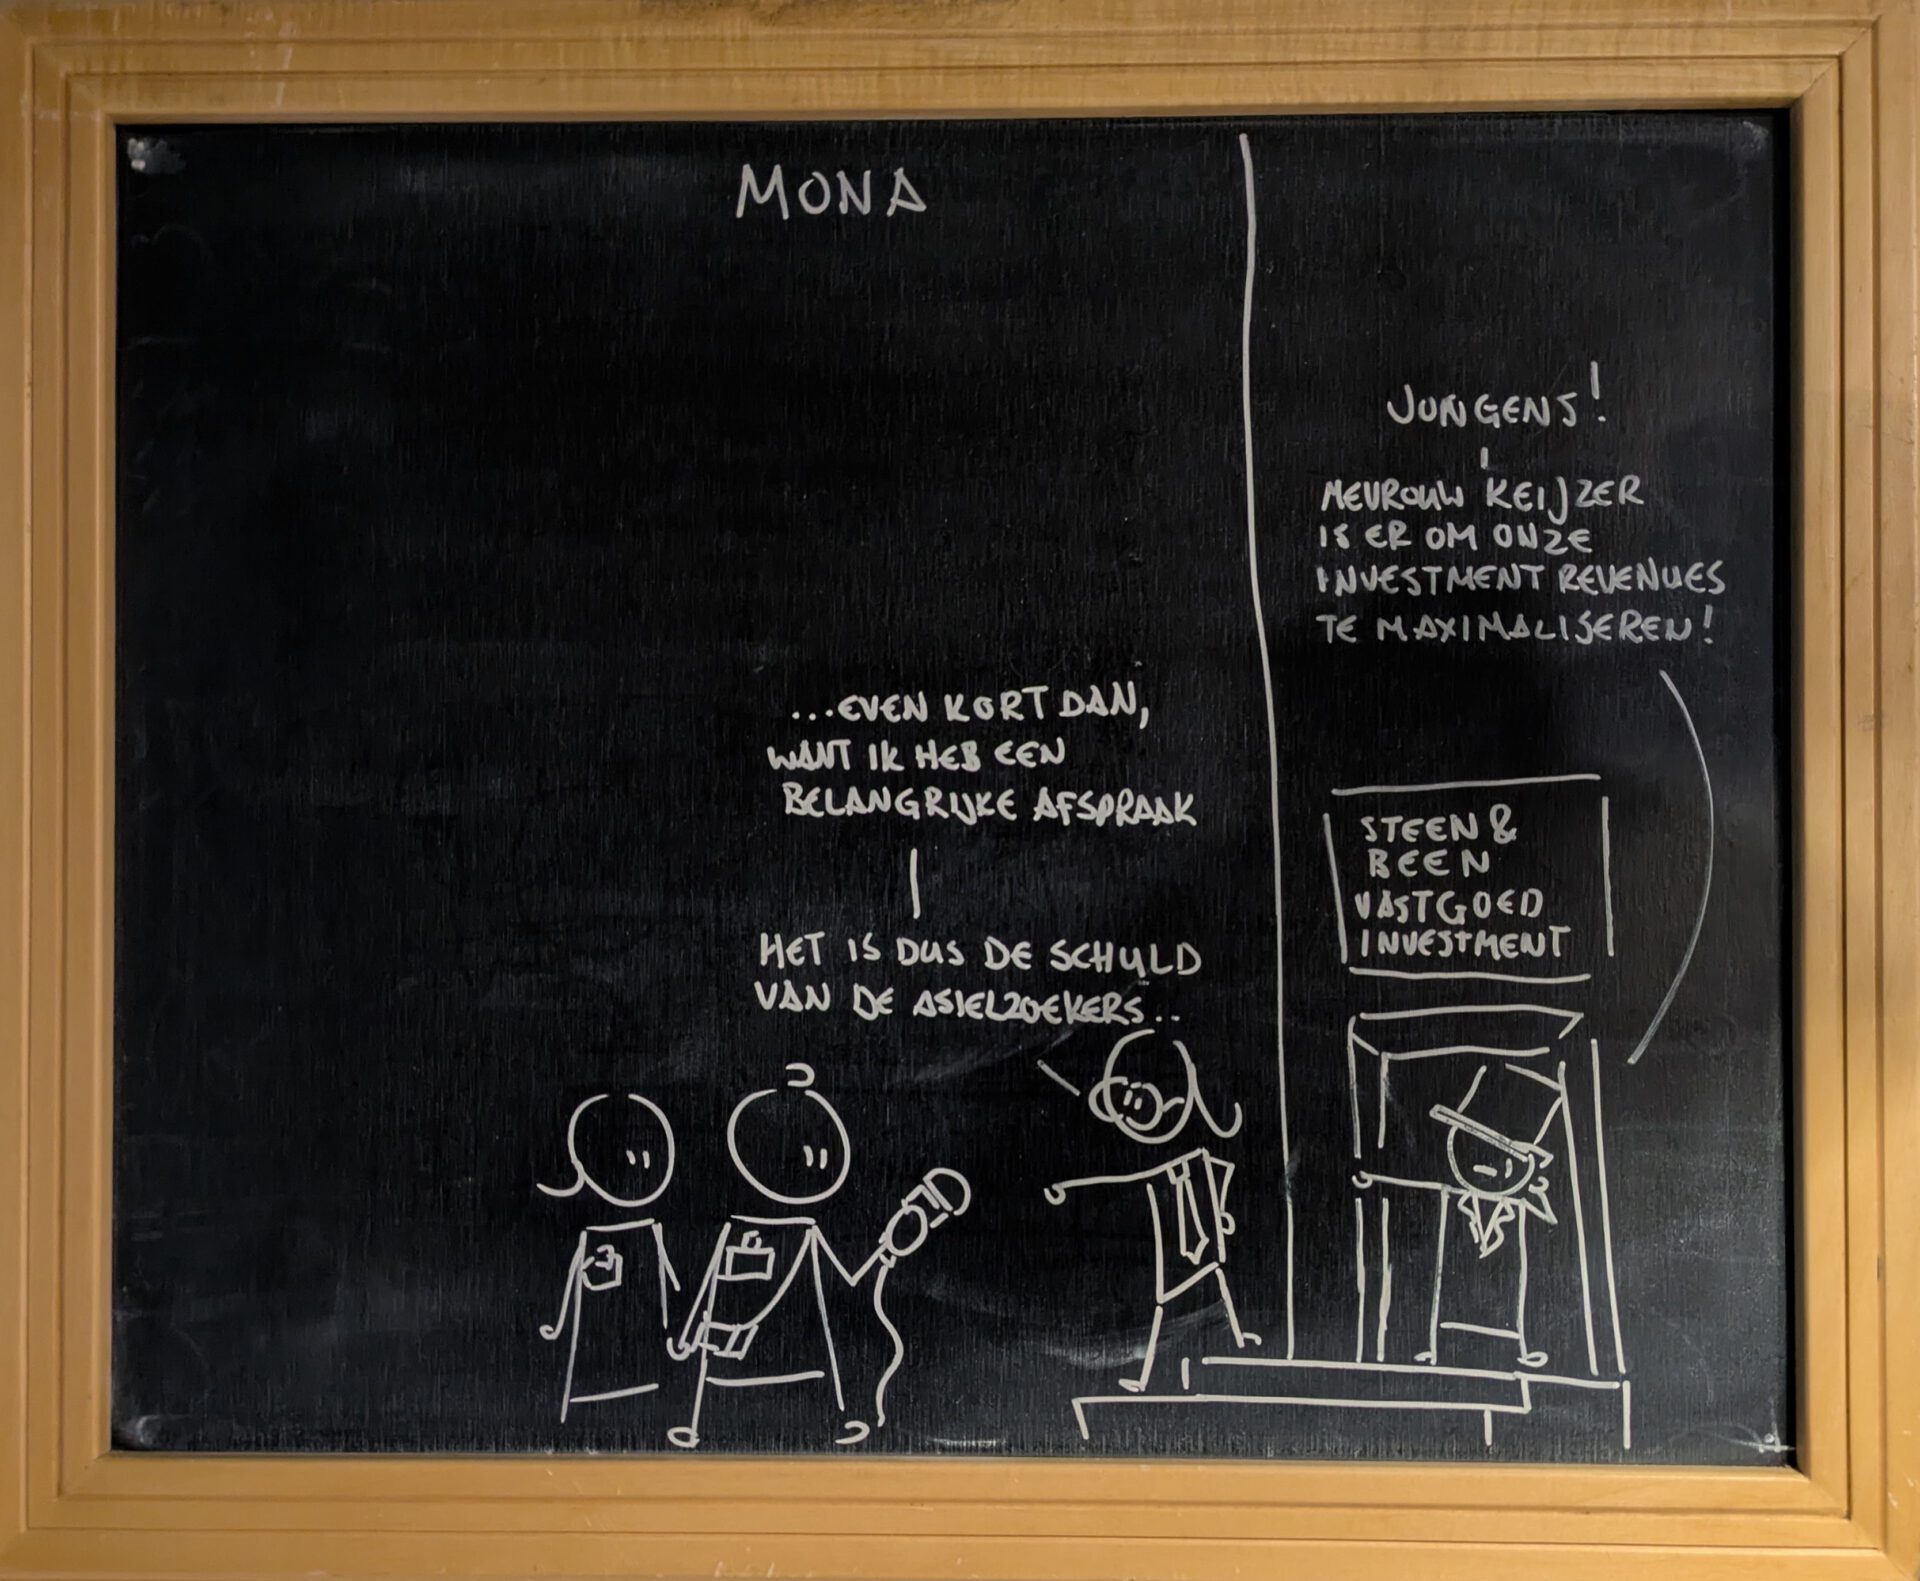 MONA
...EVEN KORT DAN,
WANT IK HEB EEN
BELANGRIJKE AFSPRAAK
HET IS DUS DE SCHULD
VAN DE ASIELZOEKERS..
JONGENS!
MEVROUW KEIJZER
IS ER OM ONZE
INVESTMENT REVENUES
TE MAXIMALISEREN!
STEEN &
BEEN
VASTGOED
INVESTMENT